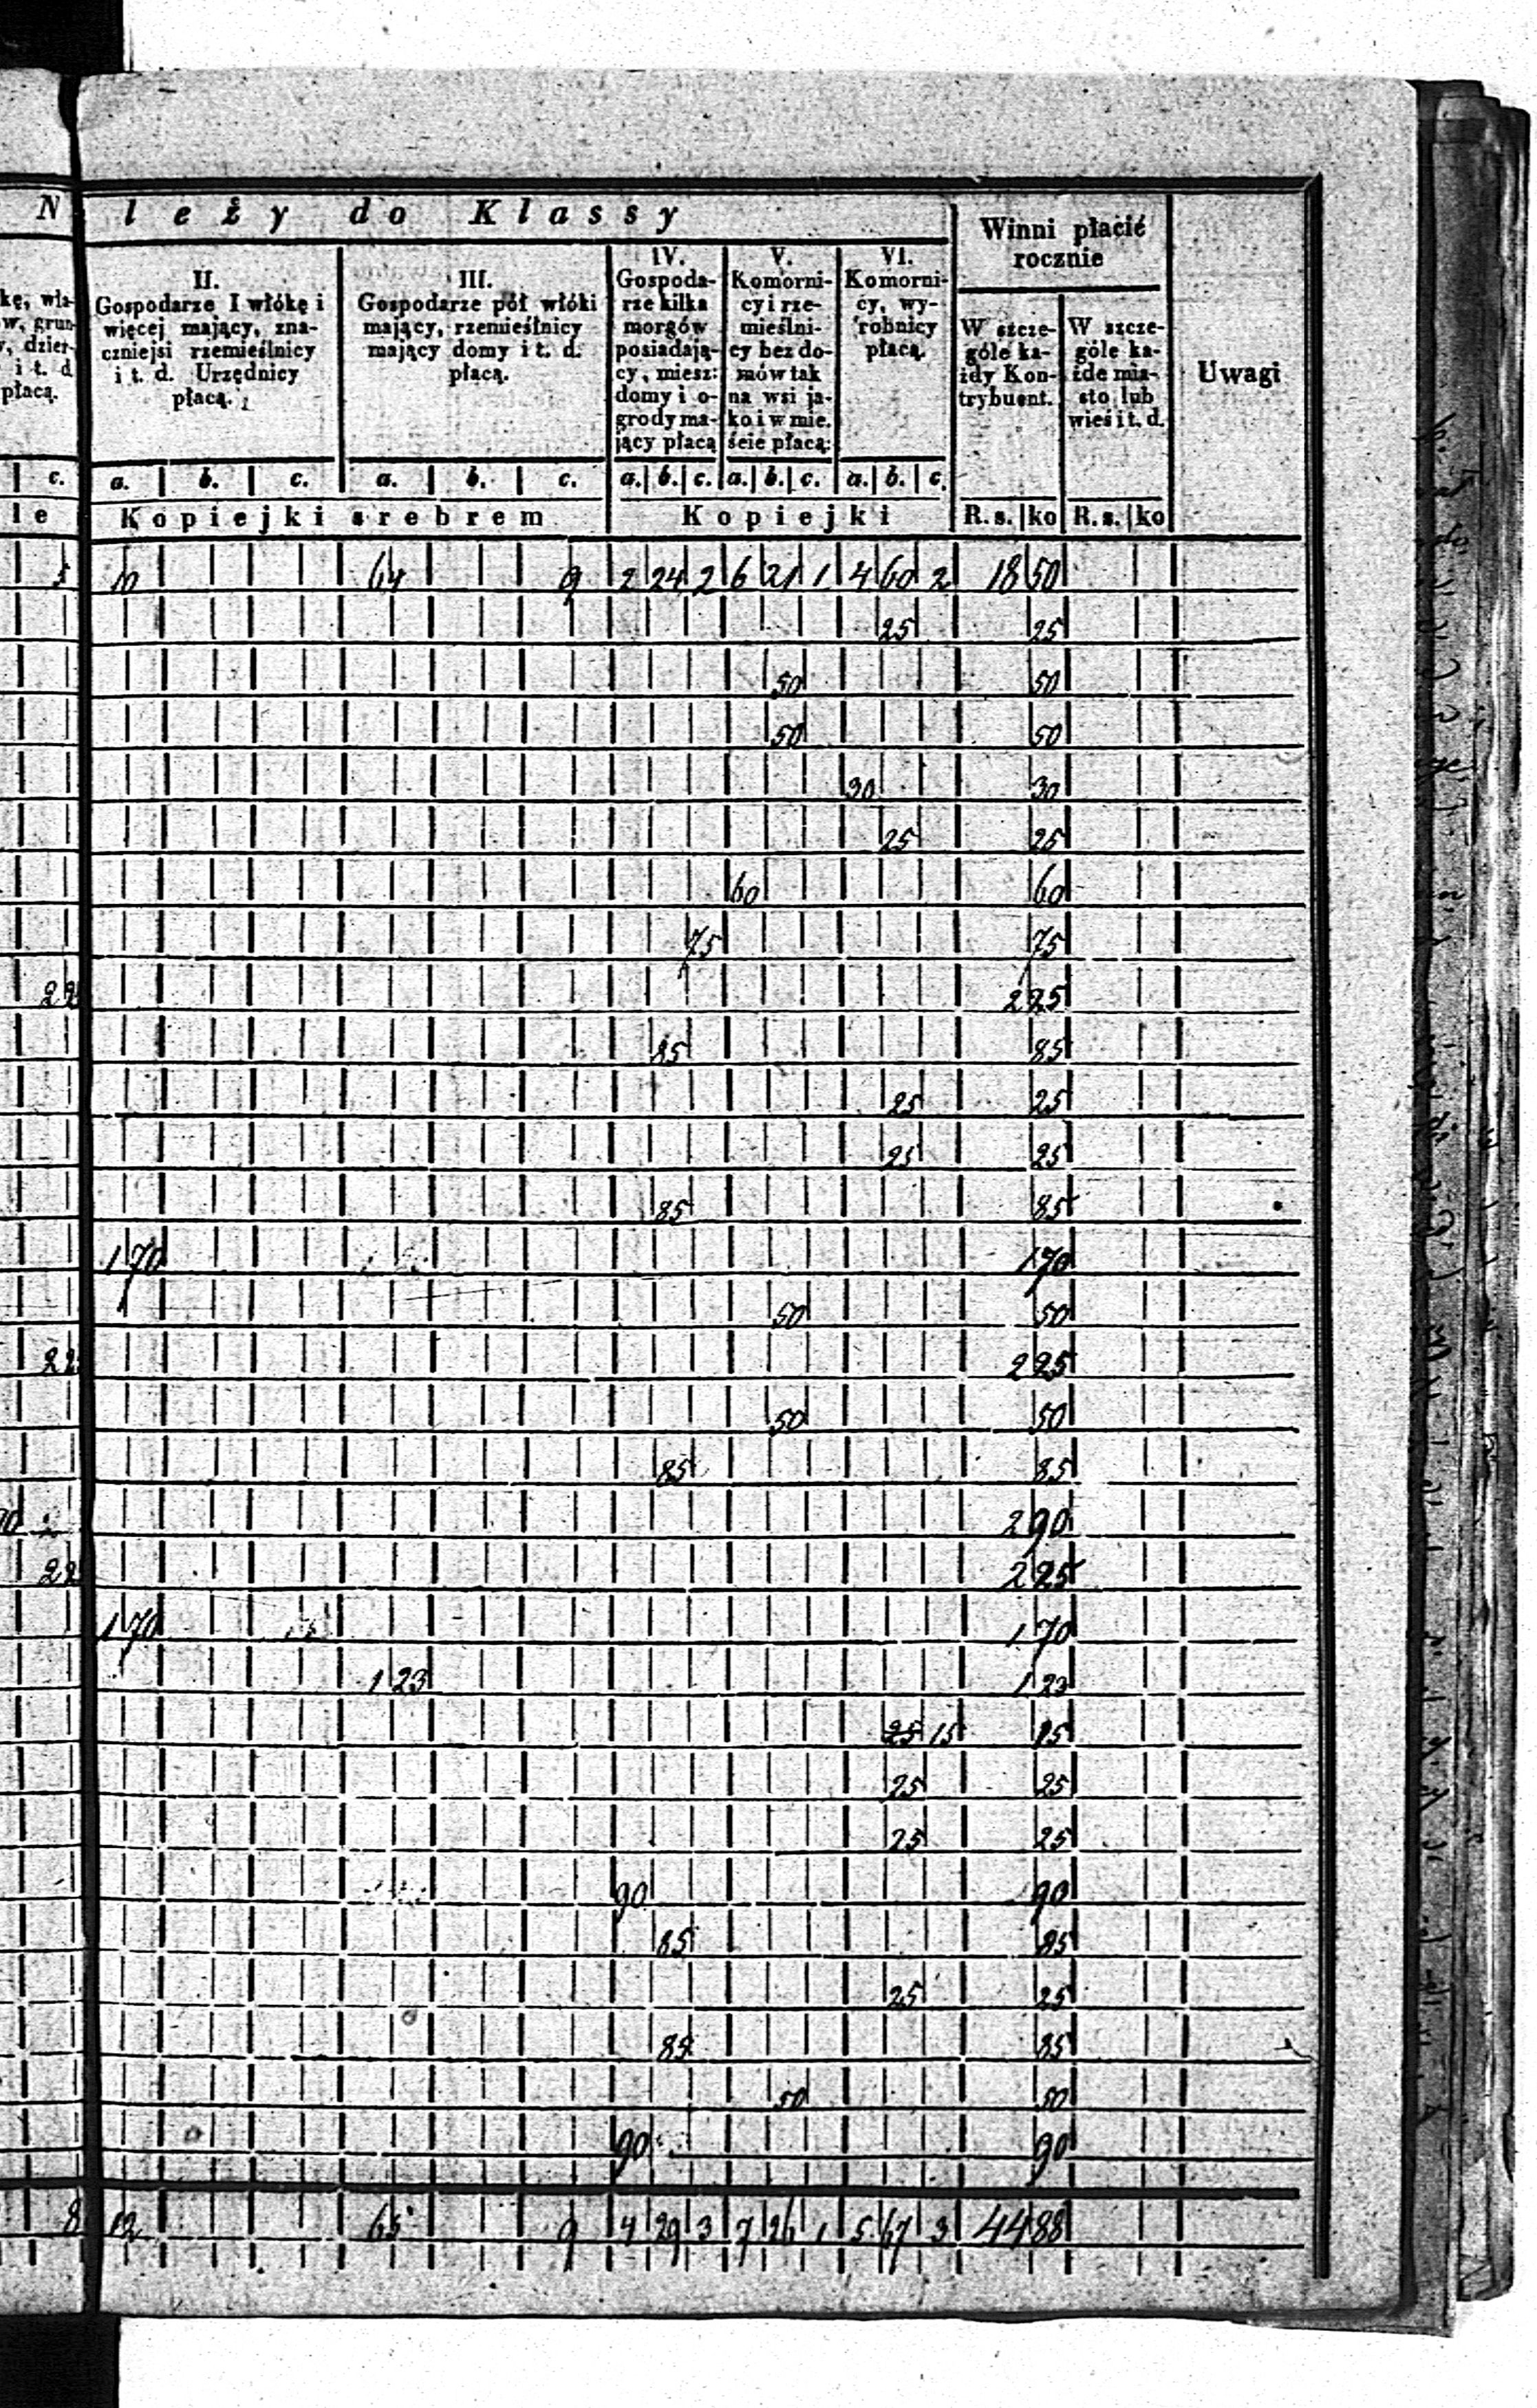 N
l e ż y d o K l a s s y
Winni płacić
rocznie
II.
Gospodarze I włókę i
więcej mający, zna-
czniejsi rzemieślnicy
i t. d. Urzędnicy
płacą.
III.
Gospodarze pół włóki
mający, rzemieślnicy
mający domy i t. d.
płacą.
IV.
Gospoda-
rze kilka
morgów
posiadają-
cy, miesz:
domy i o-
grody ma-
jący płacą
V.
Komorni-
cy i rze-
mieślni-
cy bez do-
mów tak
na wsi ja-
ko i w mie.
ście płacą:
VI.
Komorni-
cy, wy-
robnicy
płacą.
W szcze-
góle ka-
żdy Kon-
trybuent.
W szcze-
góle ka-
żde mia-
sto lub
wieś i t. d.
Uwagi
kę, wła-
w, grun-
y, dzier-
i t. d
płacą.
c. a. b. c. a. b. c. a. b. c. a. b. c. a. b. c.
le Kopiejki srebrem Kopiejki R. s. ko R. s. ko
5 10 64 9 2 24 2 6 21 1 4 60 2 18 50
25 25
50 50
50 50
30 30
25 25
60 60
75 75
22 2 25
85 85
25 25
25 25
85 85
1 70 1 70
50 50
22 2 25
50 50
85 85
90 2 90
22 2 25
1 70 1 70
1 23 1 23
25 15 15
25 25
25 25
90 90
85 85
25 25
85 85
50 50
90 90
8 12 65 9 4 29 3 7 26 1 5 67 3 44 88